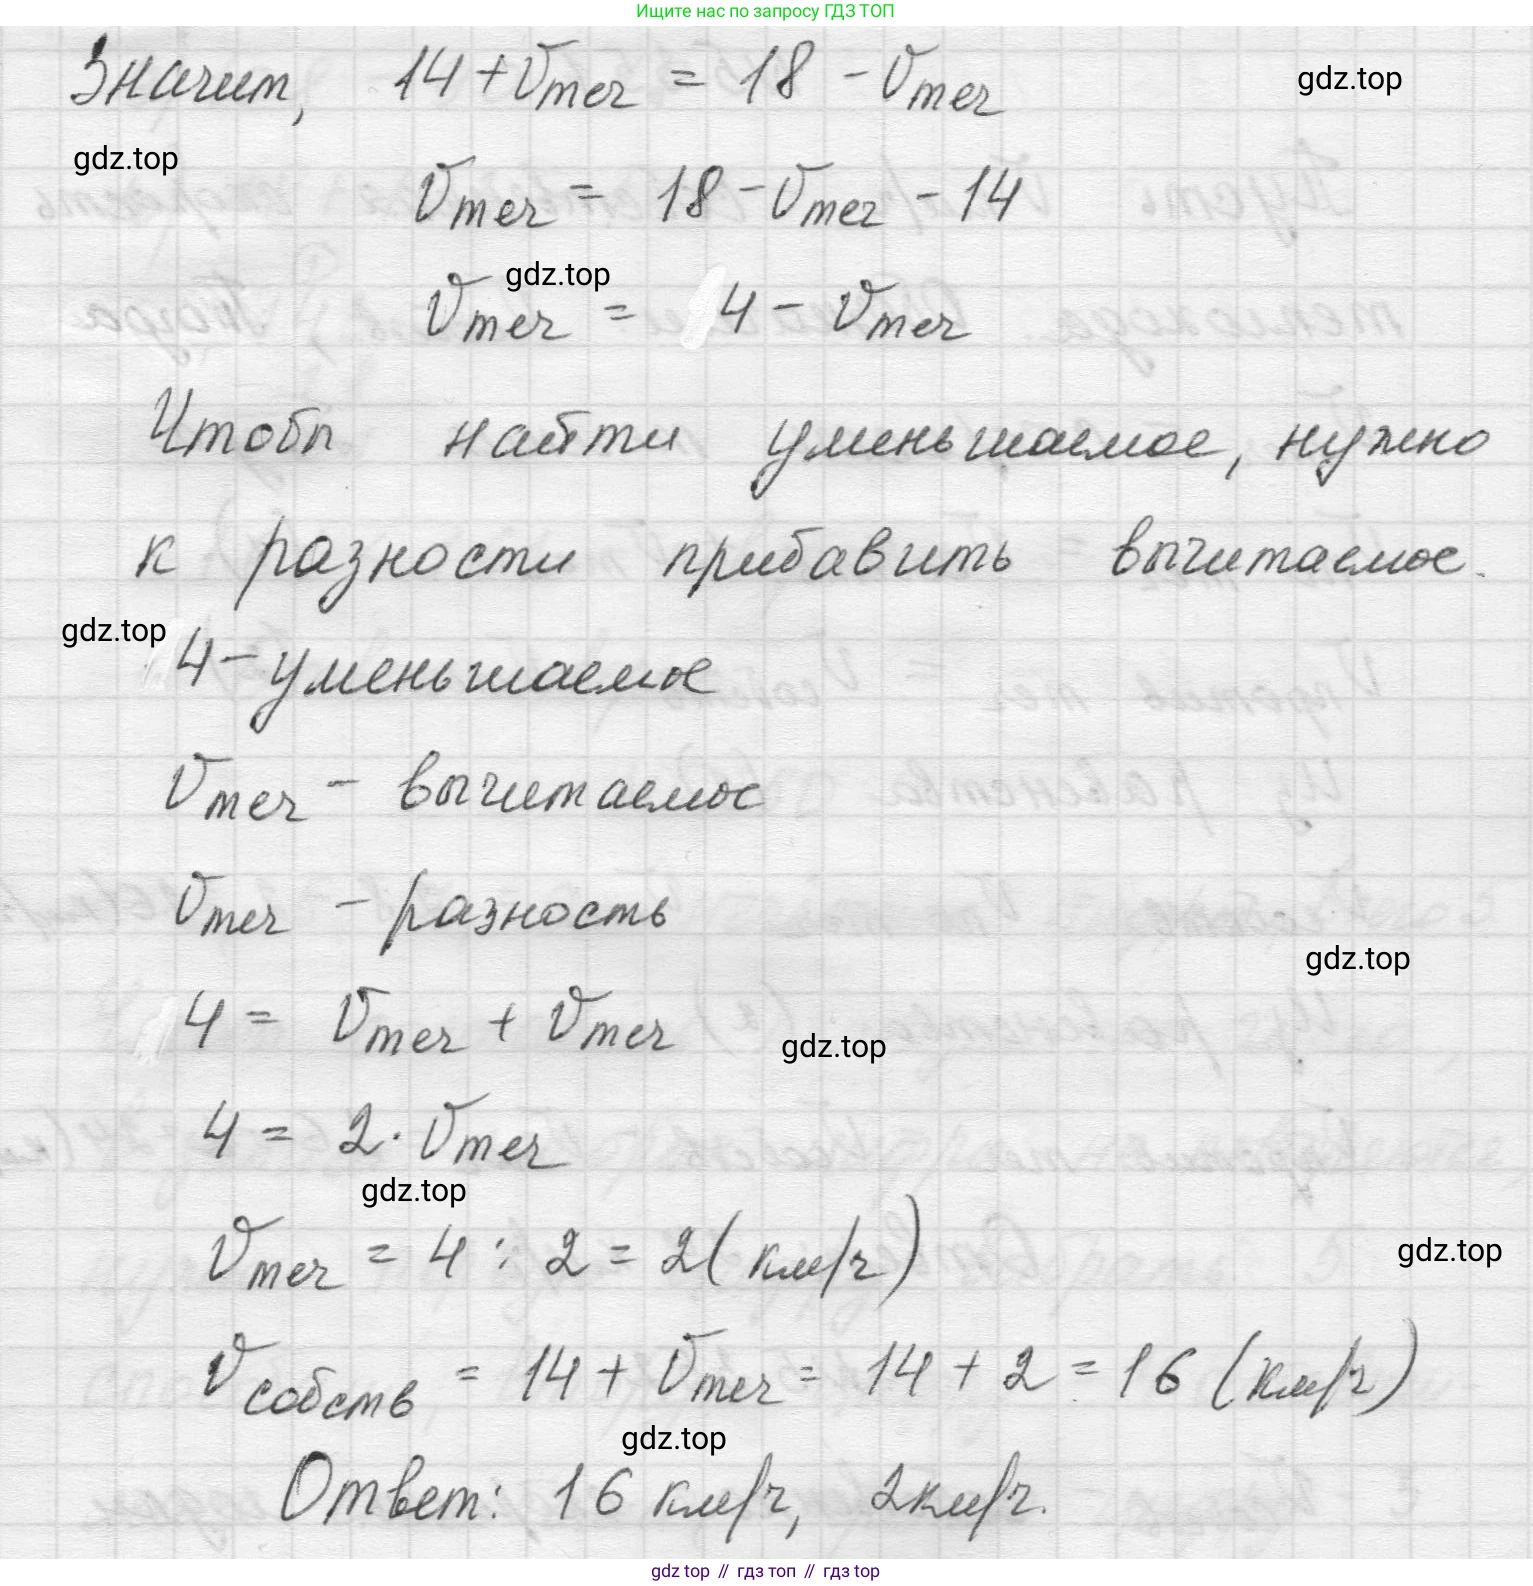 Ищите нас по запросу ГДЗ ТОП
Значит, 14 + Vтеч = 18 - Vтеч
gdz.top
gdz.top
Vтеч = 18 - Vтеч - 14
gdz.top
Vтеч = 4 - Vтеч
Чтобы найти уменьшаемое, нужно
к разности прибавить вычитаемое.
gdz.top
4 - уменьшаемое
Vтеч - вычитаемое
Vтеч - разность
gdz.top
4 = Vтеч + Vтеч
gdz.top
4 = 2 · Vтеч
gdz.top
Vтеч = 4 : 2 = 2 (км/ч)
gdz.top
Vсобств = 14 + Vтеч = 14 + 2 = 16 (км/ч)
gdz.top
Ответ: 16 км/ч, 2 км/ч.
gdz top // гдз топ // гдз top